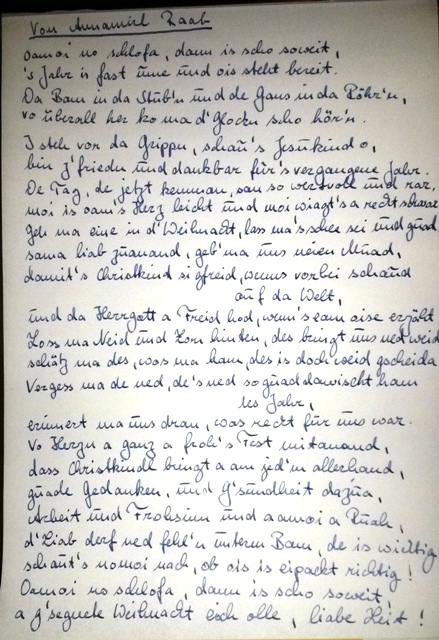 Von Annamirl Raab
Oamoi no schlofa, dann is scho soweit,
's Jahr is fast ume und ois steht bereit.
Da Bam in da Stub'n und de Gans in da Röhr'n,
vo überall her ko ma d'Glockn scho hör'n.
I steh vor da Grippn, schau's Jesukind o,
bin z'friedn und dankbar für's vergangene Jahr.
De Tag, de jetzt kemman, san so wertvoll und rar,
moi is oam's Herz leicht und moi wiagt's a recht schwar
Geh ma eine in d'Weihnacht, lass ma's schee sei und guad
sama liab zuanand, geb'ma uns neien Muad,
damit's Christkind si gfreid, wenns vorbei schaud
auf da Welt,
und da Herrgott a Freid hod, wenn's eam aise erzählt
Loss ma Neid und Zorn hinten, des bringt uns ned weid
schätz ma des, wos ma ham, des is doch weid gscheida
Vergess ma de ned, de's ned so guad dawischt ham
des Jahr,
erinnert ma uns dran, was recht für uns war.
Vo Herzn a ganz a froh's Fest mitanand,
dass Christkindl bringt a am jed'n allerhand,
guade Gedanken, und G'sundheit dazua,
Arbeit und Frohsinn und aamoi a Ruah,
d'Liab derf ned fehl'n unterm Bam, de is wichtig
schaut's nomoi nach, ob ois is eipackt richtig!
Oamoi no schlofa, dann is scho soweit
a g'segnete Weihnacht eich olle, liabe Leit!